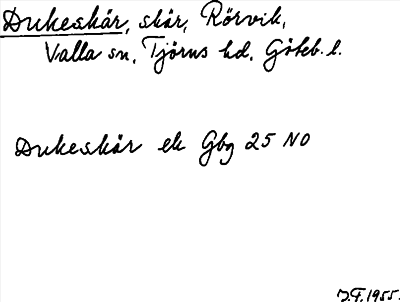 Dukeskär, skär, Rörvik,
Valla sn, Tjörns hd, Göteb. l.
Dukeskär ek Gbg 25 NO
J.F. 1955.